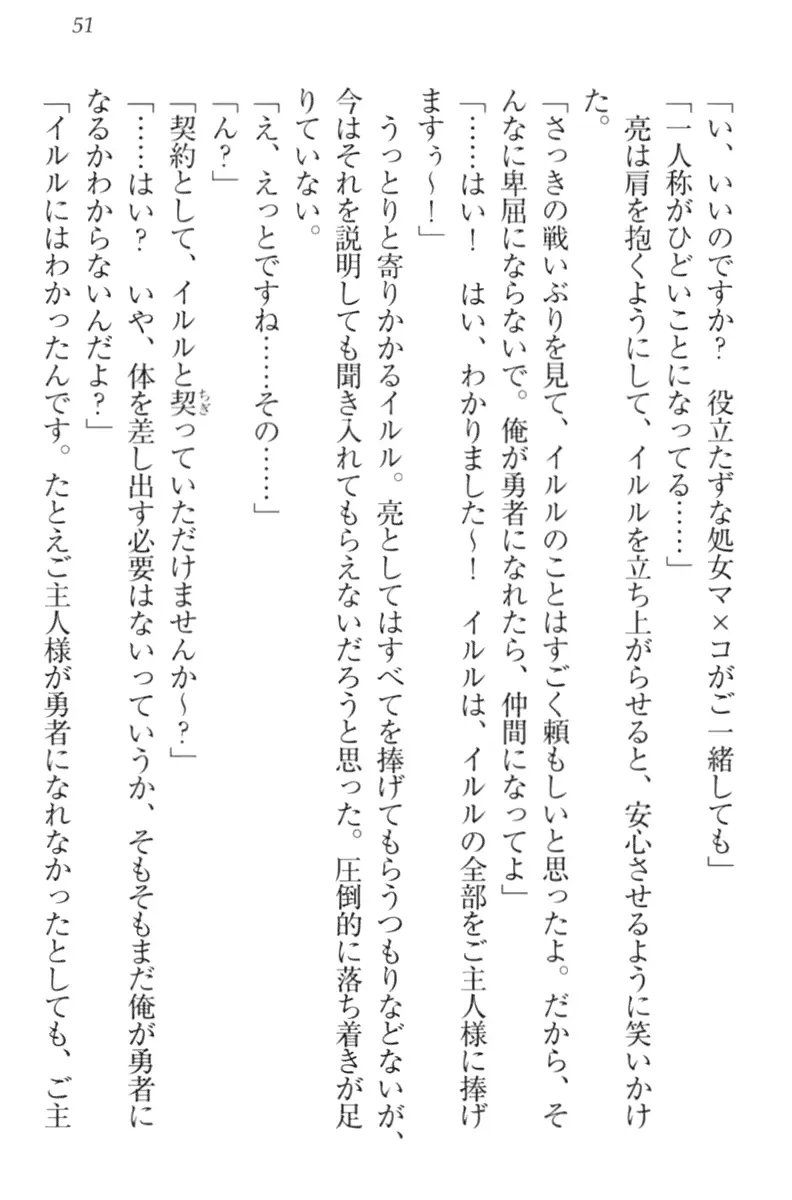 51
「い、いいのですか？　役立たずな処女マ×コがご一緒しても」
「一人称がひどいことになってる……」
　亮は肩を抱くようにして、イルルを立ち上がらせると、安心させるように笑いかけ
た。
「さっきの戦いぶりを見て、イルルのことはすごく頼もしいと思ったよ。だから、そ
んなに卑屈にならないで。俺が勇者になれたら、仲間になってよ」
「……はい！　はい、わかりました～！　イルルは、イルルの全部をご主人様に捧げ
ますぅ～！」
　うっとりと寄りかかるイルル。亮としてはすべてを捧げてもらうつもりなどないが、
今はそれを説明しても聞き入れてもらえないだろうと思った。圧倒的に落ち着きが足
りていない。
「え、えっとですね……その……」
「ん？」
「契約として、イルルと契っていただけませんか～？」
ちぎ
「……はい？　いや、体を差し出す必要はないっていうか、そもそもまだ俺が勇者に
なるかわからないんだよ？」
「イルルにはわかったんです。たとえご主人様が勇者になれなかったとしても、ご主